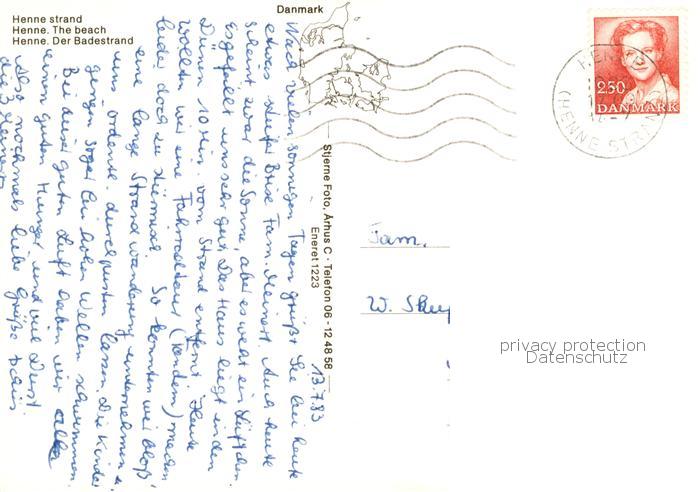 Henne strand
Henne. The beach
Henne. Der Badestrand
Danmark
HENNE STRAND
2.50
DANMARK
Stjerne Foto, Århus C · Telefon 06 - 12 48 58
Eneret 1223
13.7.83
Nach vielen sonnigen Tagen grüßt Sie bei heute
etwas steifer Brise Fam. Meinert. Auch heute
scheint zwar die Sonne, aber es weht ein Lüftchen.
Es gefällt uns sehr gut. Das Haus liegt in den
Dünen 10 Min. vom Strand entfernt. Heute
wollten wir eine Fahrradtour (Tandem) machen
leider doch zu stürmisch. So konnten wir bloß
eine lange Strandwanderung unternehmen &
uns ordentl. durchpusten lassen. Die Kinder
gingen sogar bei hohen Wellen schwimmen.
Bei dieser guten Luft haben wir alle
einen guten Hunger und viel Durst.
Also nochmals liebe Grüße
die 3 Meinerts
Fam.
W.
privacy protection
Datenschutz